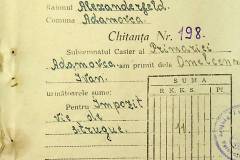 Raionul Alexanderfeld.
Comuna Adamovca
Chitanța Nr. 198.
Subsemnatul Casier al Primăriei
Adamovca am primit dela Omelcenco
Ivan.
următoarele sume:
Pentru Impozit
vie de
strugure.
SUMA
R.K.K.S. Pf.
11